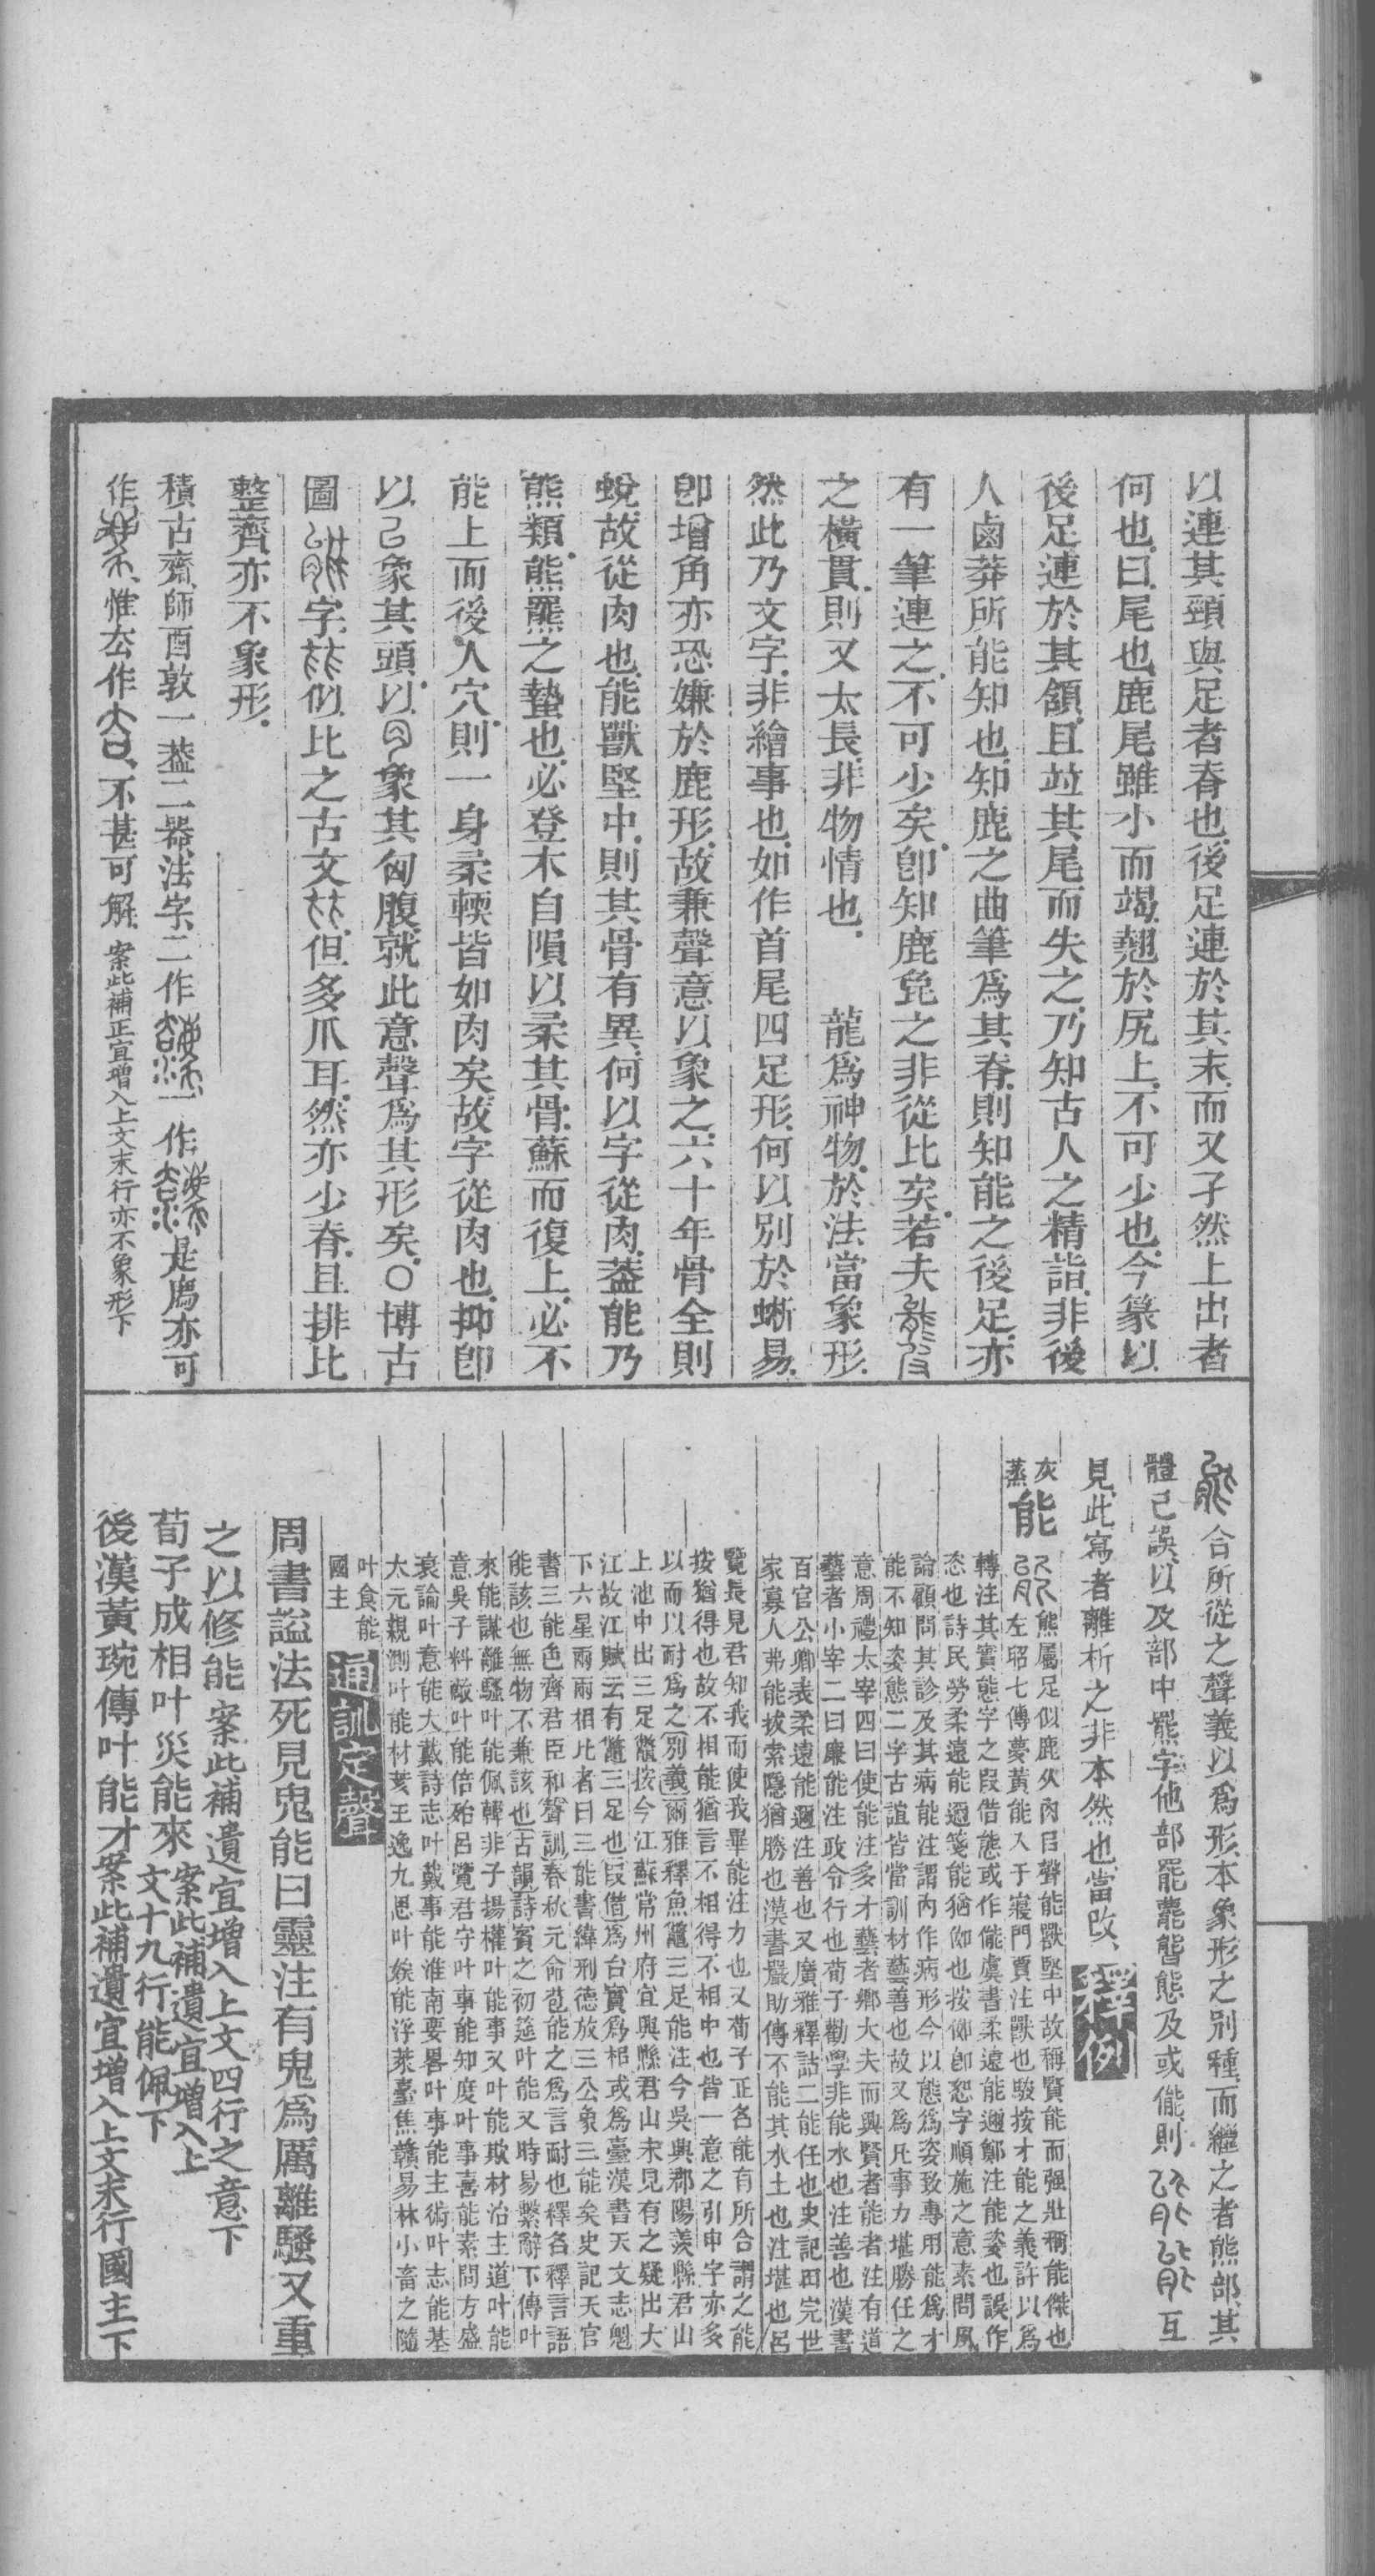 以連其頸與足者脊也後足連於其末而又孑然上出者
何也曰尾也鹿尾雖小而竭翹於尻上不可少也今篆以
後足連於其頷且竝其尾而失之乃知古人之精詣非後
人鹵莽所能知也知鹿之曲筆爲其脊則知能之後足亦
有一筆連之不可少矣卽知鹿㲋之非從比矣若夫
之橫貫則又太長非物情也 龍爲神物於法當象形
然此乃文字非繪事也如作首尾四足形何以別於蜥易
卽增角亦恐嫌於鹿形故兼聲意以象之六十年骨全則
蛻故從肉也能獸堅中則其骨有異何以字從肉葢能乃
熊類熊羆之蟄也必登木自隕以柔其骨蘇而復上必不
能上而後入穴則一身柔輭皆如肉矣故字從肉也抑卽
以㠯象其頭以象其匈腹就此意聲爲其形矣○博古
圖字似比之古文但多爪耳然亦少脊且排比
整齊亦不象形
積古齋師酉敦一葢二器法字二作一作是廌亦可
作惟厺作不甚可解 案此補正宜增入上文末行亦不象形下
合所從之聲義以爲形本象形之別種而繼之者熊部其
體已誤以及部中羆字他部罷䆀㨢態及或儱則互
見此寫者離析之非本然也當改 釋例
灰蒸 能 熊屬足似鹿从肉㠯聲能獸堅中故稱賢能而强壯稱能傑也
左昭七傳夢黃能入于寢門賈注獸也駿按才能之義許以爲
轉注其實態字之叚借態或作儱虞書柔遠能邇鄭注能姿也誤作
恣也詩民勞柔遠能邇箋能猶伽也按伽卽恕字順施之意素問風
論顧問其診及其病能注謂內作病形今以態爲姿致專用能爲才
能不知姿態二字古誼皆當訓材藝善也故又爲凡事力堪勝任之
意周禮太宰四曰使能注多才藝者鄉大夫而興賢者能者注有道
藝者小宰二曰廉能注政令行也荀子勸學非能水也注善也漢書
百官公卿表柔遠能邇注善也又廣雅釋詁二能任也史記田完世
家寡人弗能拔索隱猶勝也漢書嚴助傳不能其水土也注堪也呂
覽長見君知我而使我畢能注力也又荀子正名能有所合謂之能
按猶得也故不相能猶言不相得不相中也皆一意之引申字亦多
以而以耐爲之別義爾雅釋魚鼈三足能注今吳興郡陽羨縣君山
上池中出三足鼈按今江蘇常州府宜興縣君山未見有之疑出大
江故江賦云有鼈三足也叚借爲台實爲梠或爲臺漢書天文志魁
下六星兩兩相比者曰三能書緯刑德放三公象三能矣史記天官
書三能色齊君臣和聲訓春秋元命苞能之爲言耐也釋名釋言語
能該也無物不兼該也古韻詩賓之初筵叶能又時易繫辭下傳叶
來能謀離騷叶能佩韓非子揚權叶能事又叶能欺材治主道叶能
意吳子料敵叶能倍殆呂覽君守叶事能知度叶事喜能素問方盛
衰論叶意能大戴詩志叶戴事能淮南要畧叶事能主術叶志能基
太元親測叶能材荄王逸九思叶娭能浮萊臺焦贛易林小畜之隨
叶食能
國主 通訓定聲
周書謚法死見鬼能曰靈注有鬼爲厲離騷又重
之以修能 案此補遺宜增入上文四行之意下
荀子成相叶災能來 案此補遺宜增入上文十九行能佩下
後漢黃琬傳叶能才 案此補遺宜增入上文末行國主下